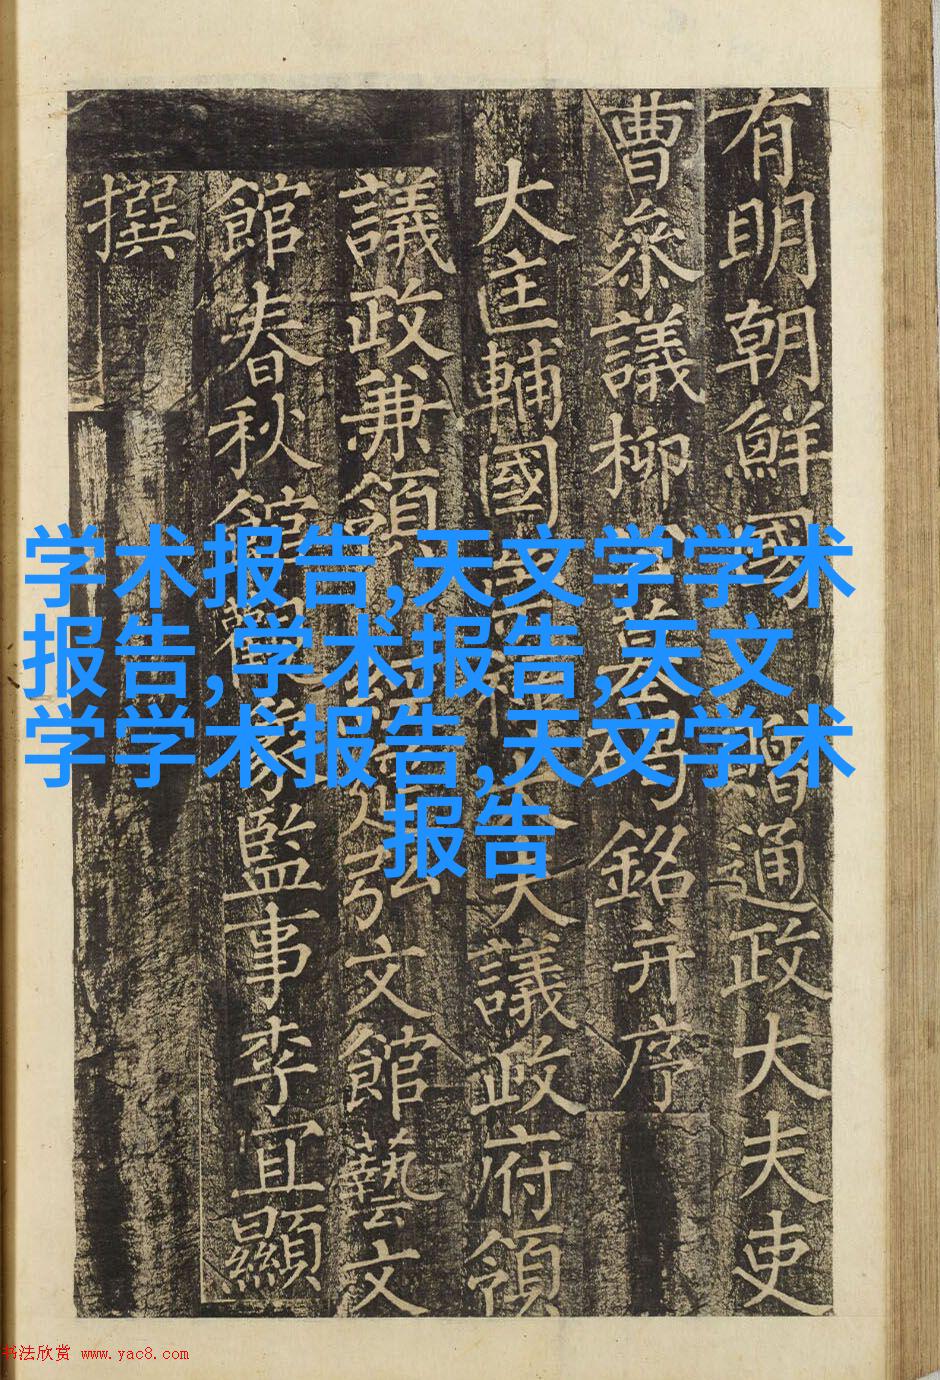 有明朝鮮國 贈通政大夫吏
曹參議柳公墓碣銘并序
大匡輔國崇祿大夫議政府領
議政兼領經筵弘文館藝文
館春秋館觀象監事李宜顯
撰
学术报告,天文学学术
报告,学术报告,天文
学学术报告,天文学术
报告
书法欣赏 www.yac8.com